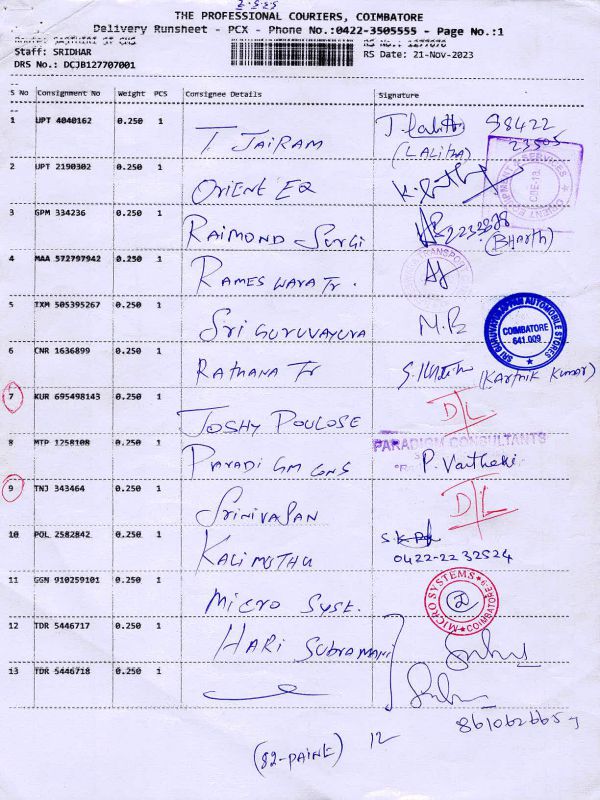 2-5-25
THE PROFESSIONAL COURIERS, COIMBATORE
Delivery Runsheet - PCX - Phone No.:0422-3505555 - Page No.:1
Staff: SRIDHAR
RS Date: 21-Nov-2023
DRS No.: DCJB127707001
S No Consignment No Weight PCS Consignee Details Signature
1 UPT 4040162 0.250 1 T JAIRAM 98422
23505
(LALITHA)
2 UPT 2190302 0.250 1 ORIENT EQ
3 GPM 334236 0.250 1 RAIMOND SURGI 2232328
(BHARTH)
4 MAA 572797942 0.250 1 RAMESWARA Tr.
5 IXM 505395267 0.250 1 SRI GURUVAYURA M.R
SRI GURUVAYURAPPAN AUTOMOBILE STORES
COIMBATORE
641 009
6 CNR 1636899 0.250 1 RATHANA Tr (Karthik Kumar)
7 KUR 695498143 0.250 1 JOSHY POULOSE D/L
8 MTP 1258108 0.250 1 PARADIGM CNS
PARADIGM CONSULTANTS
P. Varthaki
9 TNJ 343464 0.250 1 SRINIVASAN D/L
10 POL 2582842 0.250 1 KALIMUTHU
0422-2232524
11 GGN 910259101 0.250 1 MICRO SYSE.
MICRO SYSTEMS COIMBATORE-9
12 TDR 5446717 0.250 1 HARI SUBRAMANI
13 TDR 5446718 0.250 1
(82-PAINE) 12